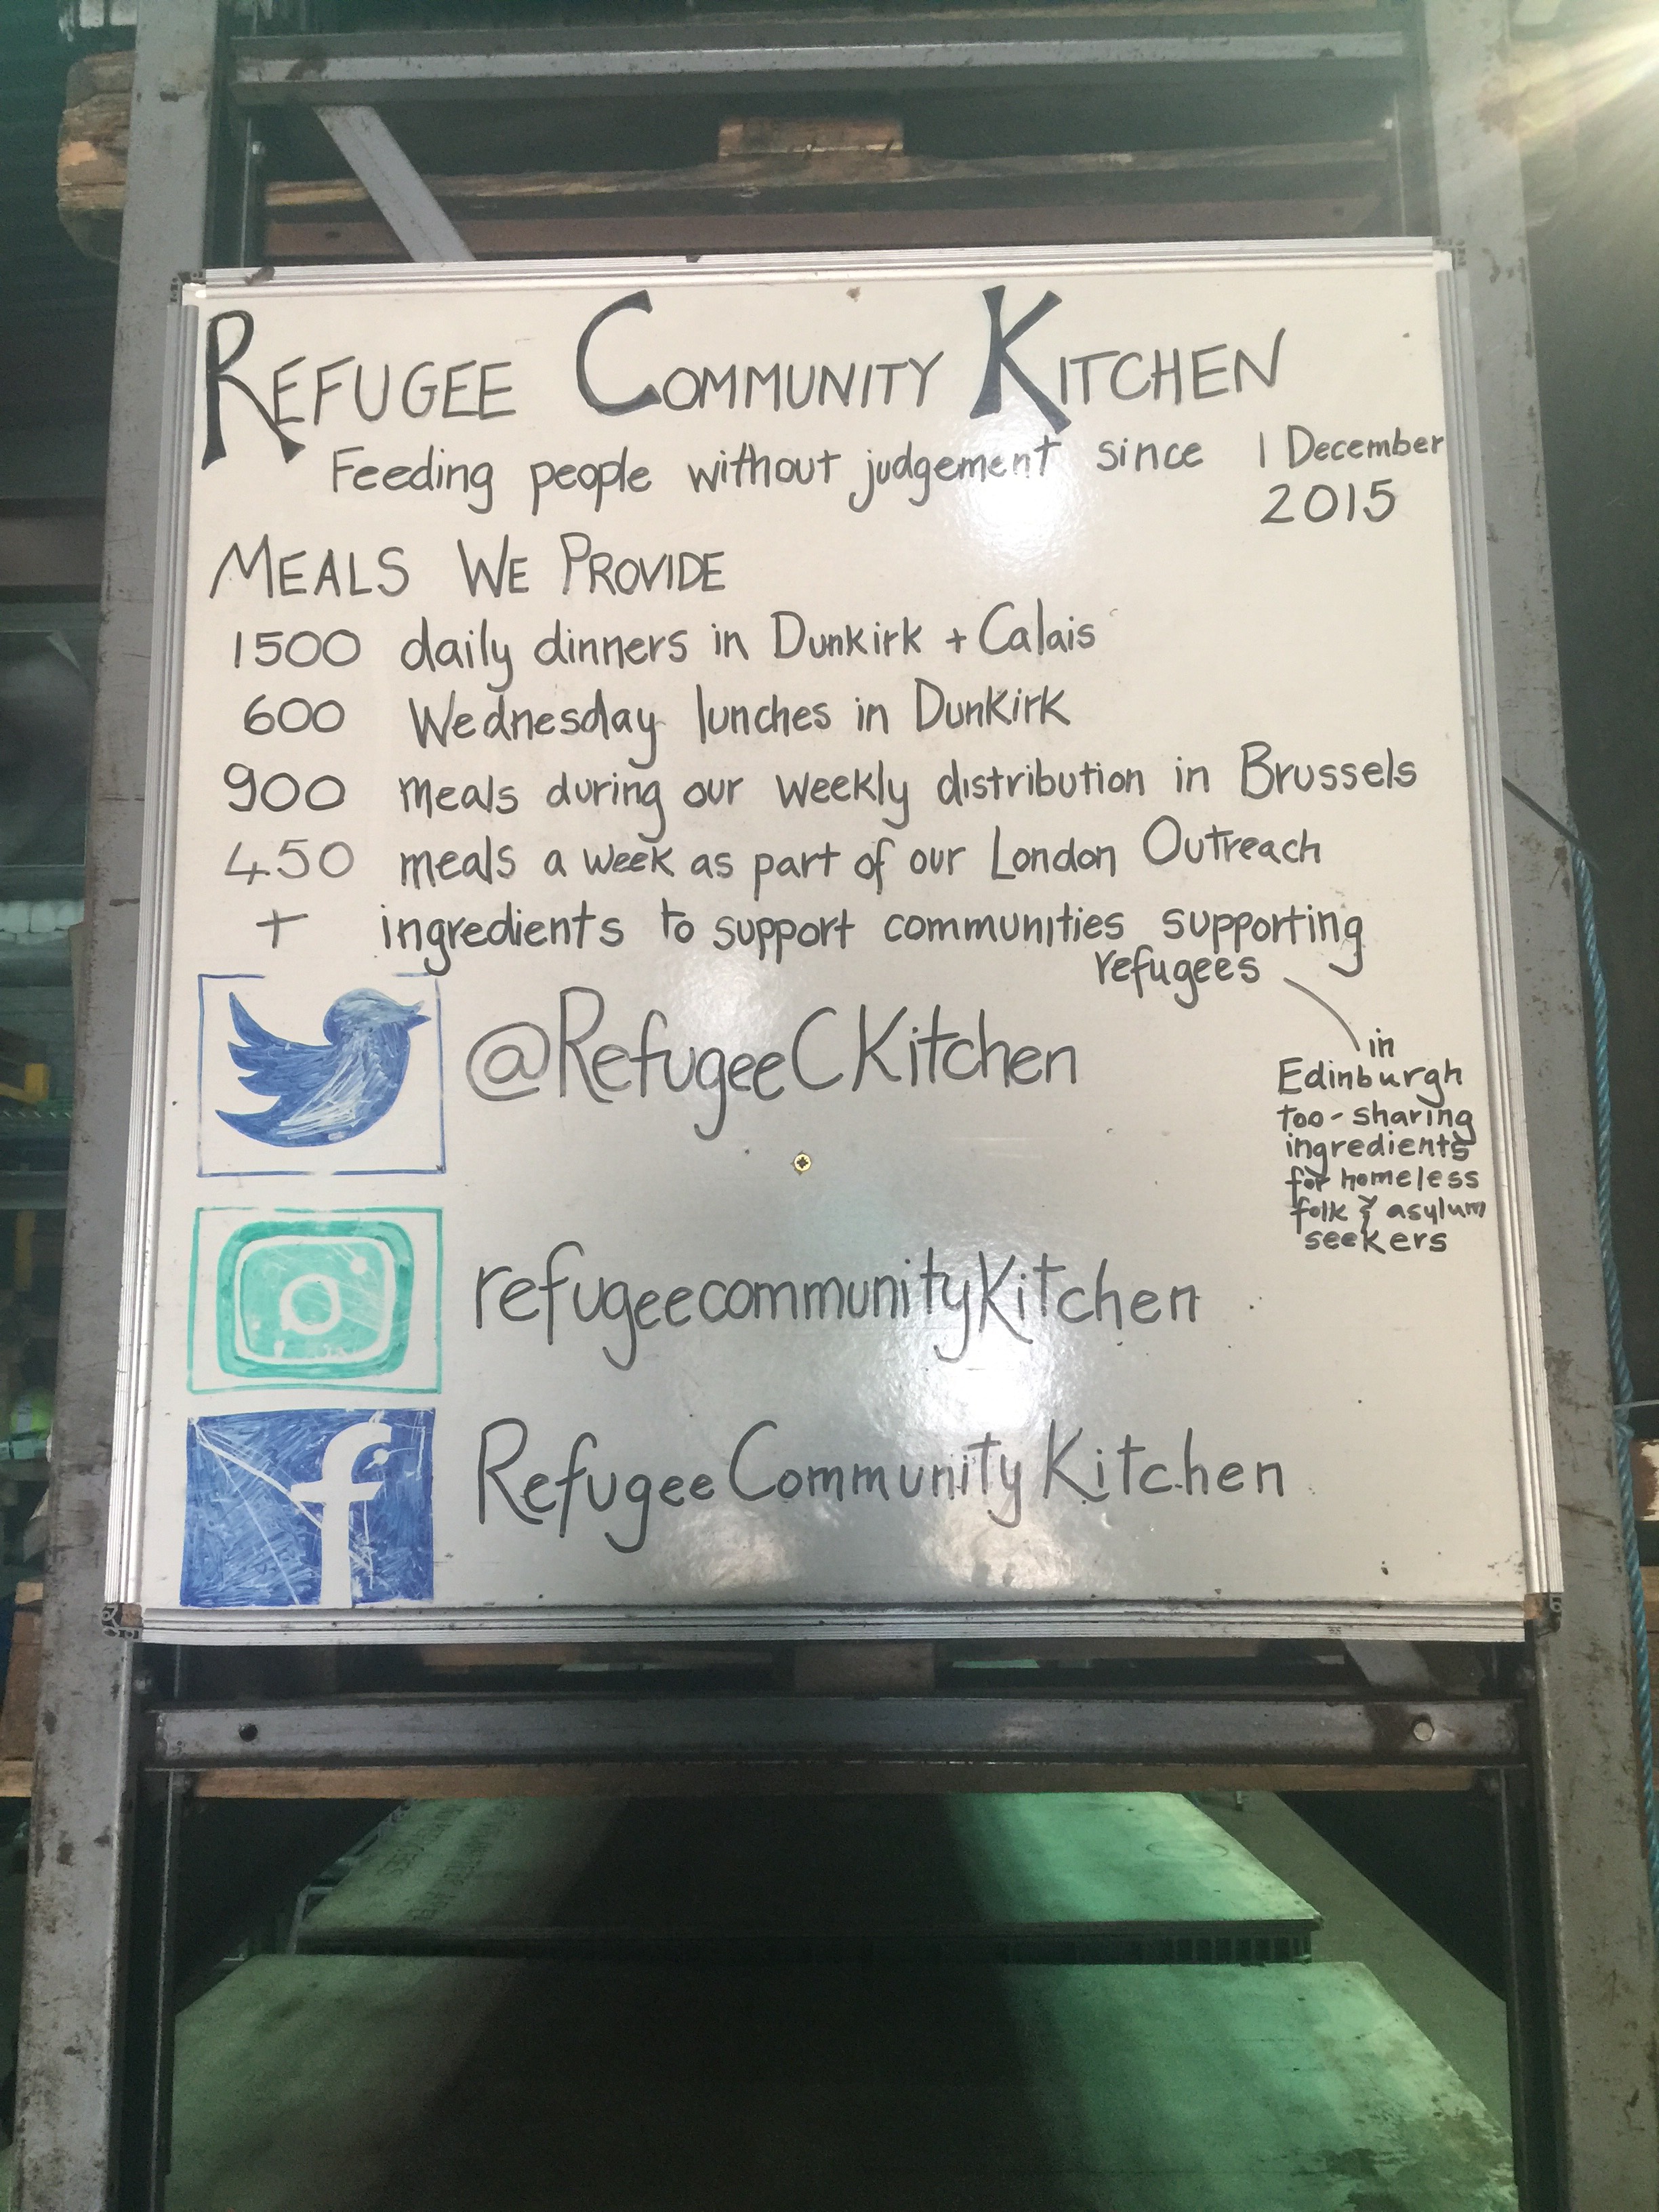 REFUGEE COMMUNITY KITCHEN
Feeding people without judgement since 1 December
2015
MEALS WE PROVIDE
1500 daily dinners in Dunkirk + Calais
600 Wednesday lunches in Dunkirk
900 meals during our weekly distribution in Brussels
450 meals a week as part of our London Outreach
+ ingredients to support communities supporting
refugees
in
Edinburgh
too - sharing
ingredients
for homeless
folk & asylum
seekers
@RefugeeCKitchen
refugeecommunitykitchen
f Refugee Community Kitchen